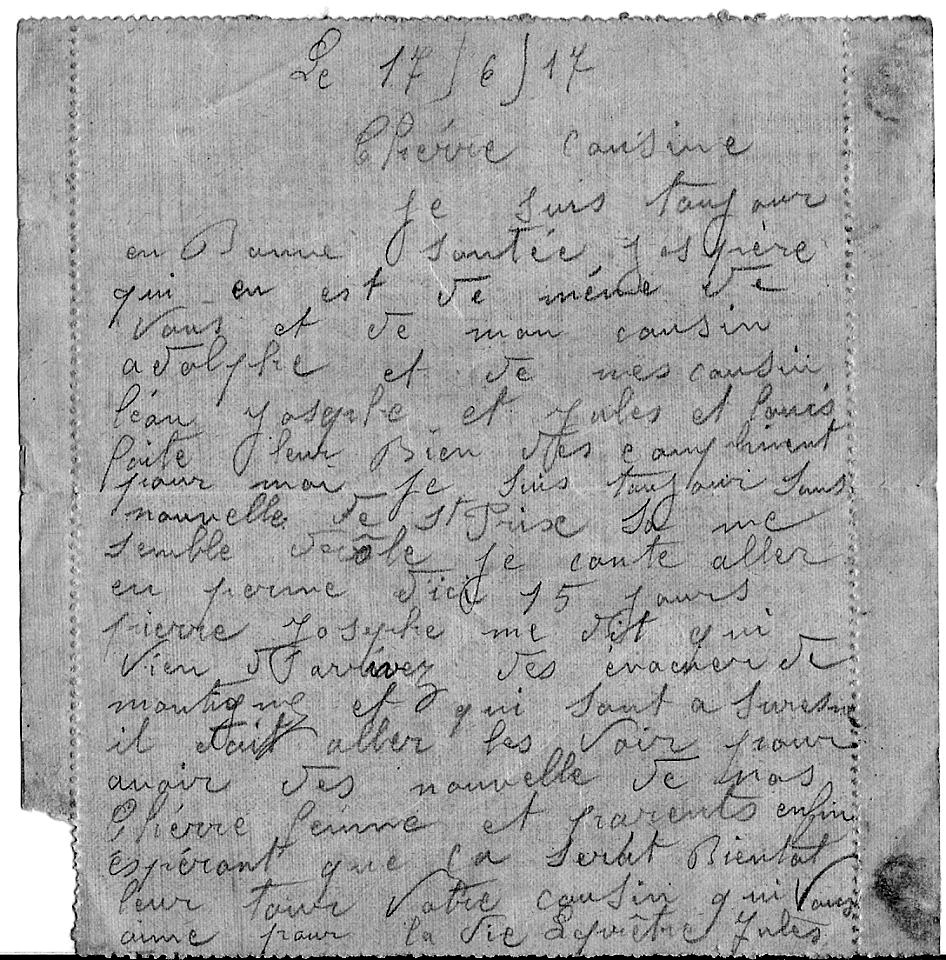 Le 17/6/17
Chérrie cousine
je suis toujour
en Bonne santée j'éspère
qui en est de même de
vous et de mon cousin
adolphe et de mes cousin
léon Josephe et Jules et louis
faite leur Bien des compliment
pour moi je suis toujour sans
nouvelle de St Prix sa me
semble drôle je conte aller
en perme d'ici 15 jours
pierre Josephe me dit qui
vien d'arrivez des évacuer de
montigne et qui sont a Suresn
il doit aller les voir pour
avoir des nouvelle de nos
Chérrie femme et parents enfin
éspérant que ça serat Bientot
leur tour Votre cousin qui Vous
aime pour la vie Jules